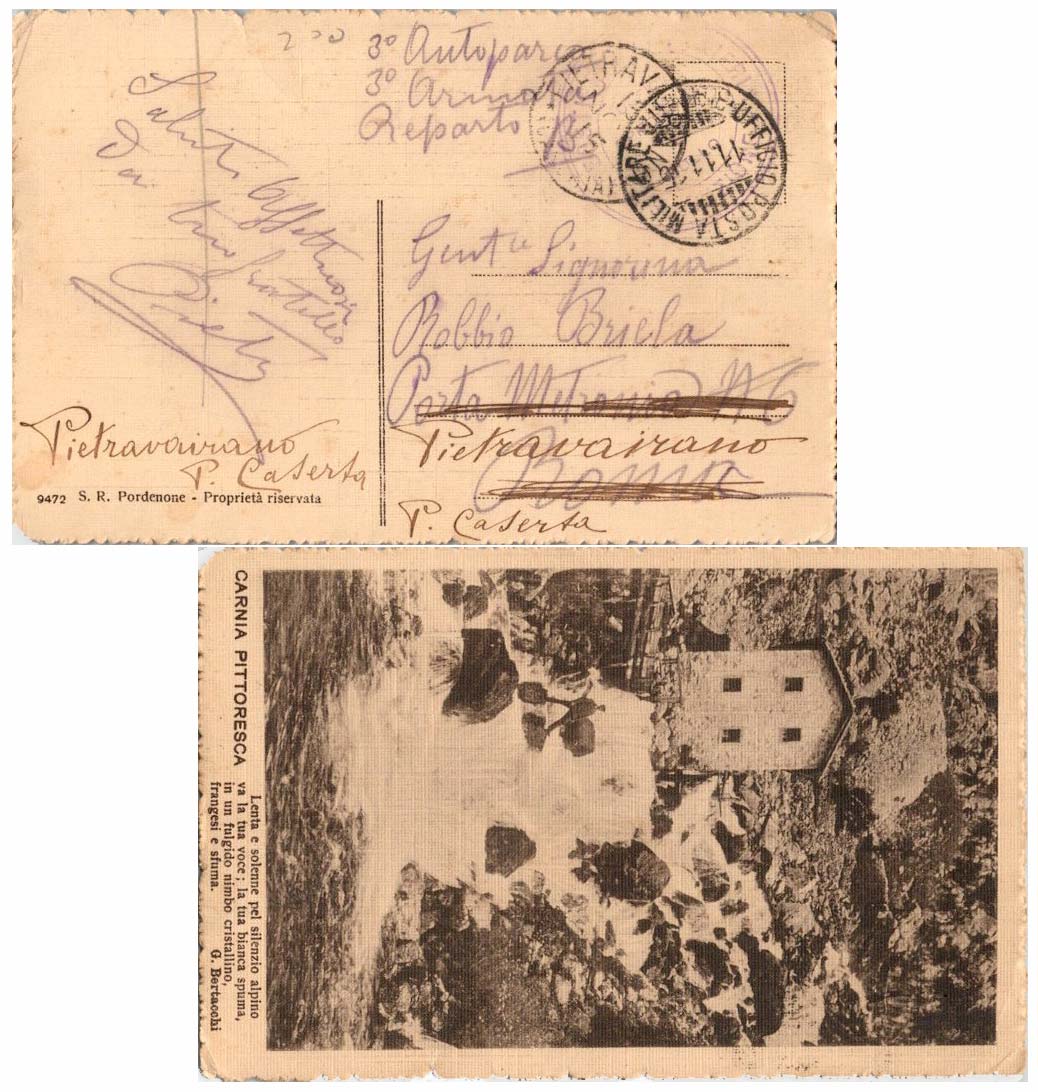 3º Autoparco
3º Armata
Reparto
Saluti affettuosi
Da tuo fratello
Gent le Signorina
Robbio Briela
Porta Metronia N 6
Roma
Pietravairano
P. Caserta
Pietravairano
P. Caserta
9472 S. R. Pordenone - Proprietà riservata
UFFICIO POSTA MILITARE
11.11.15
PIETRAV
CARNIA PITTORESCA
Lenta e solenne pel silenzio alpino
va la tua voce; la tua bianca spuma,
in un fulgido nimbo cristallino,
frangesi e sfuma.
G. Bertacchi